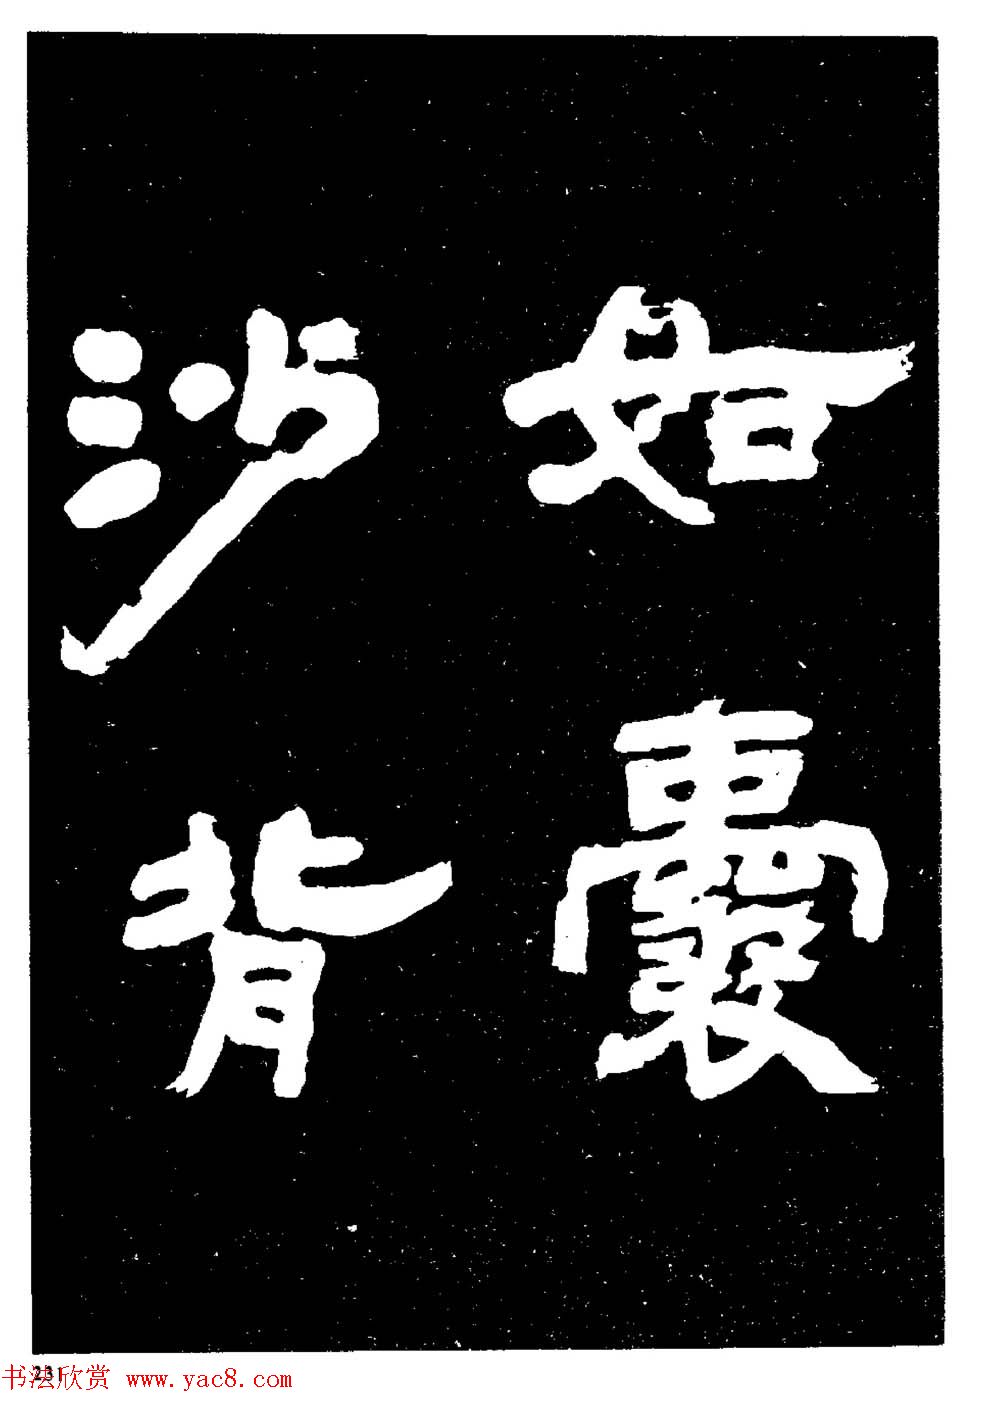 如囊
沙背
231
书法欣赏 www.yac8.com